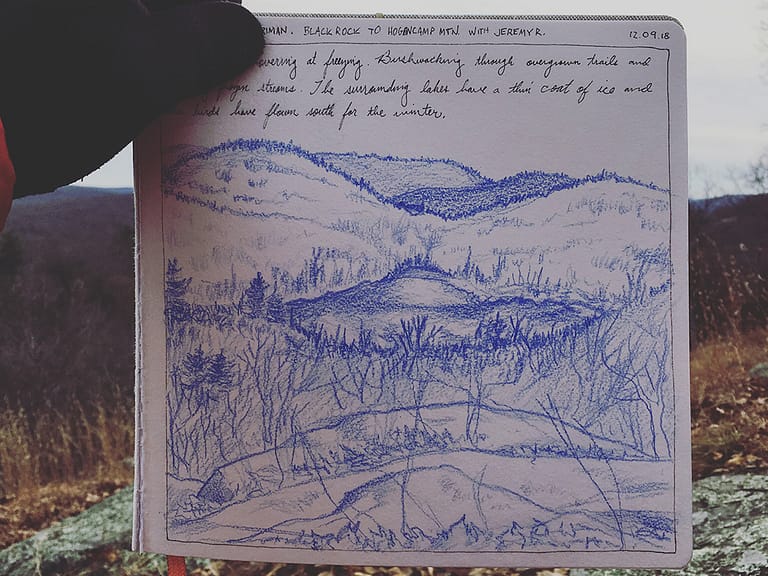 RIMAN. BLACK ROCK TO HOGENCAMP MTN. WITH JEREMY R. 12.09.18
overing at freezing. Bushwacking through overgrown trails and
streams. The surrounding lakes have a thin coat of ice and
birds have flown south for the winter.